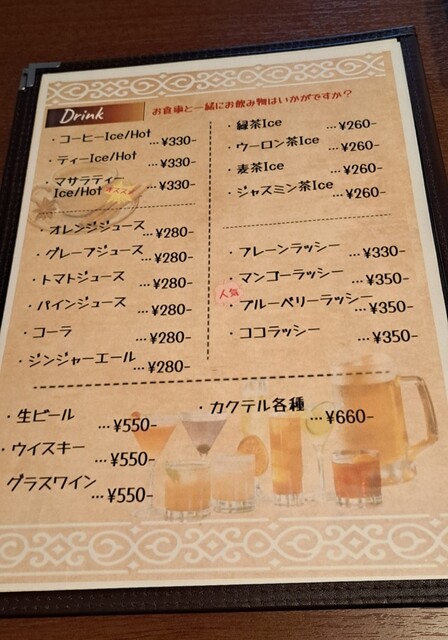 Drink
お食事と一緒にお飲み物はいかがですか？
・コーヒーIce/Hot …¥330-
・ティーIce/Hot …¥330-
・マサラティー
Ice/Hot オススメ …¥330-
・オレンジジュース …¥280-
・グレープジュース …¥280-
・トマトジュース …¥280-
・パインジュース …¥280-
・コーラ …¥280-
・ジンジャーエール …¥280-
・緑茶Ice …¥260-
・ウーロン茶Ice …¥260-
・麦茶Ice …¥260-
・ジャスミン茶Ice …¥260-
・プレーンラッシー …¥330-
・マンゴーラッシー …¥350-
人気
・ブルーベリーラッシー …¥350-
・ココラッシー …¥350-
・生ビール …¥550-
・ウイスキー …¥550-
グラスワイン …¥550-
・カクテル各種 …¥660-